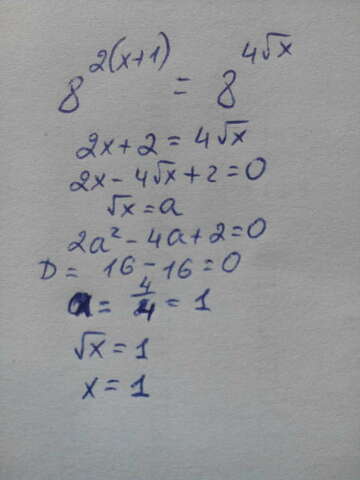 8^{2(x+1)} = 8^{4√x}
2x+2=4√x
2x-4√x+2=0
√x=a
2a²-4a+2=0
D= 16-16=0
a= 4/4 =1
√x=1
x=1